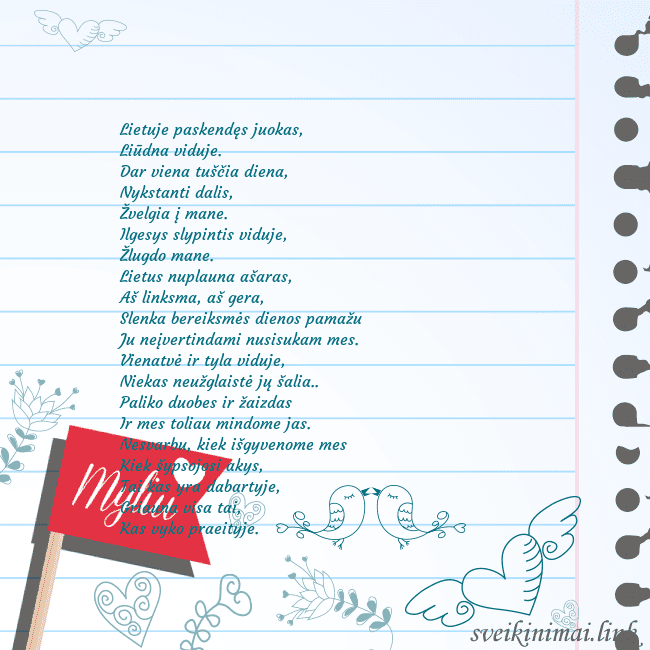 Lietuje paskendęs juokas,
Liūdna viduje.
Dar viena tuščia diena,
Nykstanti dalis,
Žvelgia į mane.
Ilgesys slypintis viduje,
Žlugdo mane.
Lietus nuplauna ašaras,
Aš linksma, aš gera,
Slenka bereiksmės dienos pamažu
Ju neįvertindami nusisukam mes.
Vienatvė ir tyla viduje,
Niekas neužglaistė jų šalia..
Paliko duobes ir žaizdas
Ir mes toliau mindome jas.
Nesvarbu, kiek išgyvenome mes
Kiek šypsojosi akys,
Tai kas yra dabartyje,
Griauna visa tai,
Kas vyko praeityje.
Myliu
sveikinimai.link